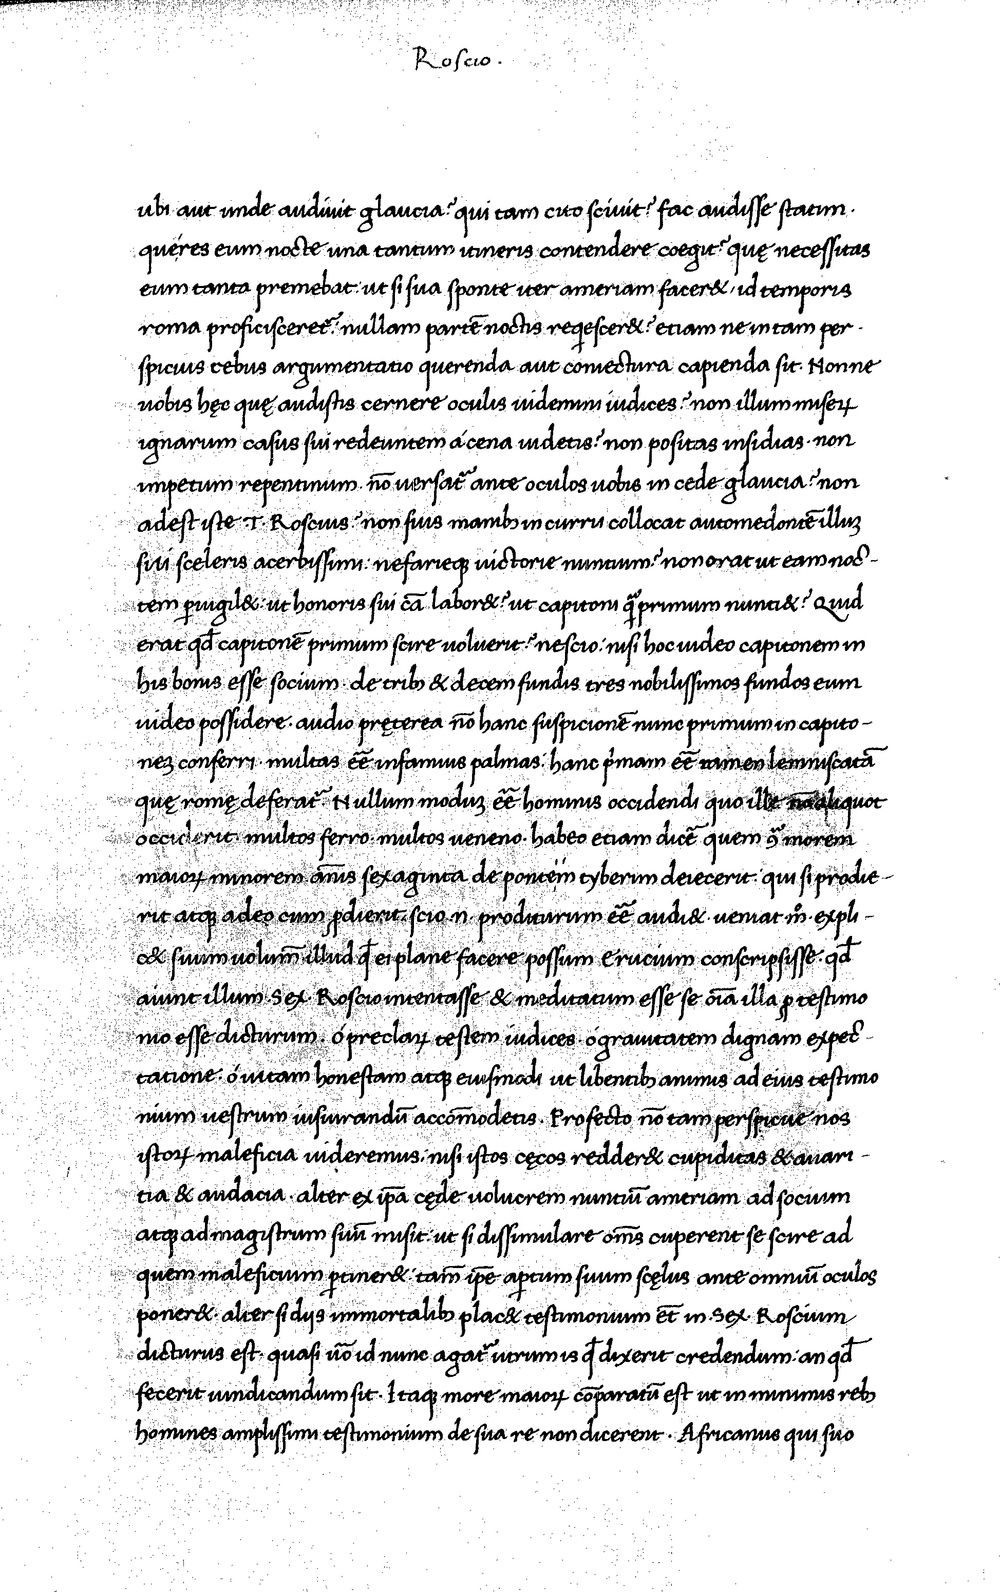 Roscio.
ubi aut unde audiuit glaucia? qui tam cito sciuit? fac audisse statim.
quę res eum nocte una tantum itineris contendere coegit? quę necessitas
eum tanta premebat: ut si sua sponte iter ameriam facer&, id temporis
roma proficisceret᷑? nullam partē noctis reqͥescer&? etiam ne in tam per-
spicuis rebus argumentatio querenda aut coniectura capienda sit. Nonne
uobis hęc quę audistis cernere oculis uidemini iudices? non illum miseꝝ
ignarum casus sui redeuntem a cena uidetis? non positas insidias. non
impetum repentinum. nō uersat᷑ ante oculos uobis in cede glaucia? non
adest iste .T. Roscius? non suis manibꝫ in curru collocat automedontē illuꝫ
sui sceleris acerbissimi: nefarieqꝫ uictorie nuntium? non orat ut eam noc-
tem ꝑuigil&: ut honoris sui cā labor&? ut capitoni qͣprimum nunti&? Quid
erat qd̄ capitonē primum scire uoluerit? nescio: nisi hoc uideo capitonem in
his bonis esse socium. de tribꝫ & decem fundis tres nobilissimos fundos eum
uideo possidere. audio pręterea nō hanc suspicionē nunc primum in capito-
neꝫ conferri. multas eē̄ infamius palmas: hanc pͥmam eē̄ tamen lemniscatā
quę romę deferat᷑. Nullum moduꝫ eē̄ hominis occidendi quo ille nō aliquot
occiderit: multos ferro. multos veneno. habeo etiam dicē quem ꝯͣ morem
maioꝝ minorem ānis sexaginta de pontem tyberim deiecerit: qui si prodie-
rit atqꝫ adeo cum ꝓdierit. scio .n. proditurum eē̄ audi&. ueniat m̊. expli-
c& suum uolum̄ illud qd̄ ei plane facere possum Erucium conscripsisse. qd̄
aiunt illum Sex. Roscio intentasse & meditatum esse se oīa illa ꝓ testimo
nio esse dicturum. ó preclaꝝ testem iudices. ó grauitatem dignam expec-
tatione. ó uitam honestam atqꝫ eiusmodi ut libentibꝫ animis ad eius testimo
nium uestrum iusiurandū accōmodetis. Profecto nō tam perspicue nos
istoꝝ maleficia uideremus. nisi istos cęcos redder& cupiditas & auari-
tia & audacia. alter ex ip̄a cęde uolucrem nuntiū ameriam ad socium
atqꝫ ad magistrum suū misit: ut si dissimulare om̄s cuperent se scire ad
quem maleficium ꝑtiner& tam̄ ip̄e aꝑtum suum scęlus ante omniū oculos
poner&. alter si dijs immortalibꝫ plac& testimonium ēt in .Sex. Roscium
dicturus est. quasi ūo id nunc agat᷑ utrum is qd̄ dixerit credendum: an qd̄
fecerit uindicandum sit. Itaqꝫ more maioꝝ cōparatū est ut in minimis rebꝫ
homines amplissimi testimonium de sua re non dicerent. Africanus qui suo